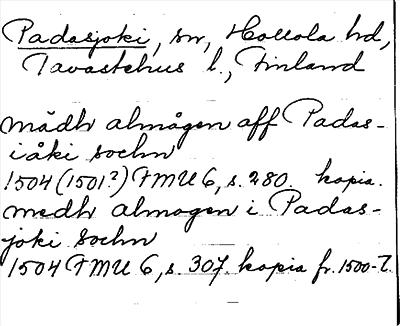 Padasjoki, sn, Hollola hd,
Tavastehus l., Finland
mådh almågen aff Padas-
iåki sochn
1504 (1501?) FMU 6, s. 280. kopia.
medh almogen i Padas-
joki sochn
1504 FMU 6, s. 307. kopia fr. 1500-t.